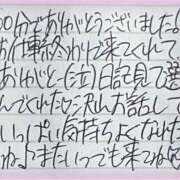 00分でありがとうございました!
お仕事終わりで来てくれて
ありがとー(泣)日記見て選
んでくれた♡沢山お話して
いっぱい気持ちよくなれた
ね♪またいつでも来てねー